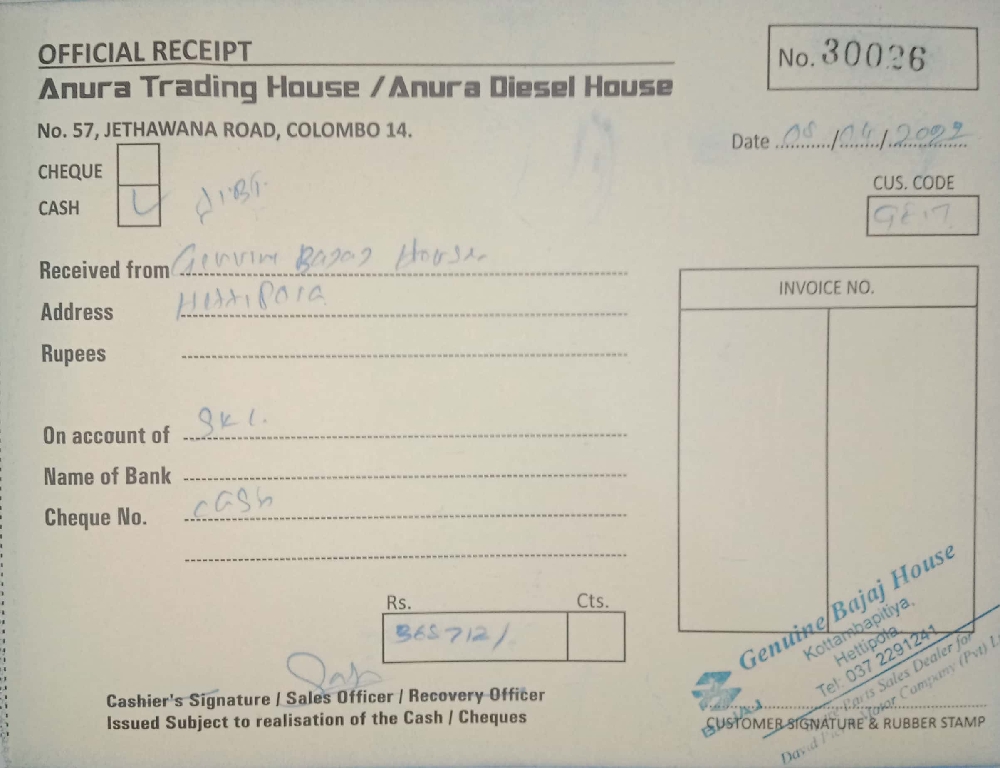 OFFICIAL RECEIPT
No. 30026
Anura Trading House / Anura Diesel House
No. 57, JETHAWANA ROAD, COLOMBO 14.
Date 05/04/2022
CHEQUE
CASH
CUS. CODE
Received from Genuine Bajaj House
INVOICE NO.
Address Hettipola
Rupees
On account of
Name of Bank
Cheque No. cash
Rs. Cts.
365712/
Cashier's Signature / Sales Officer / Recovery Officer
Issued Subject to realisation of the Cash / Cheques
Genuine Bajaj House
Kottambapitiya,
Hettipola
Tel: 037 2291241
Parts Sales Dealer for
Motor Company (Pvt) L
BAJAJ
CUSTOMER SIGNATURE & RUBBER STAMP